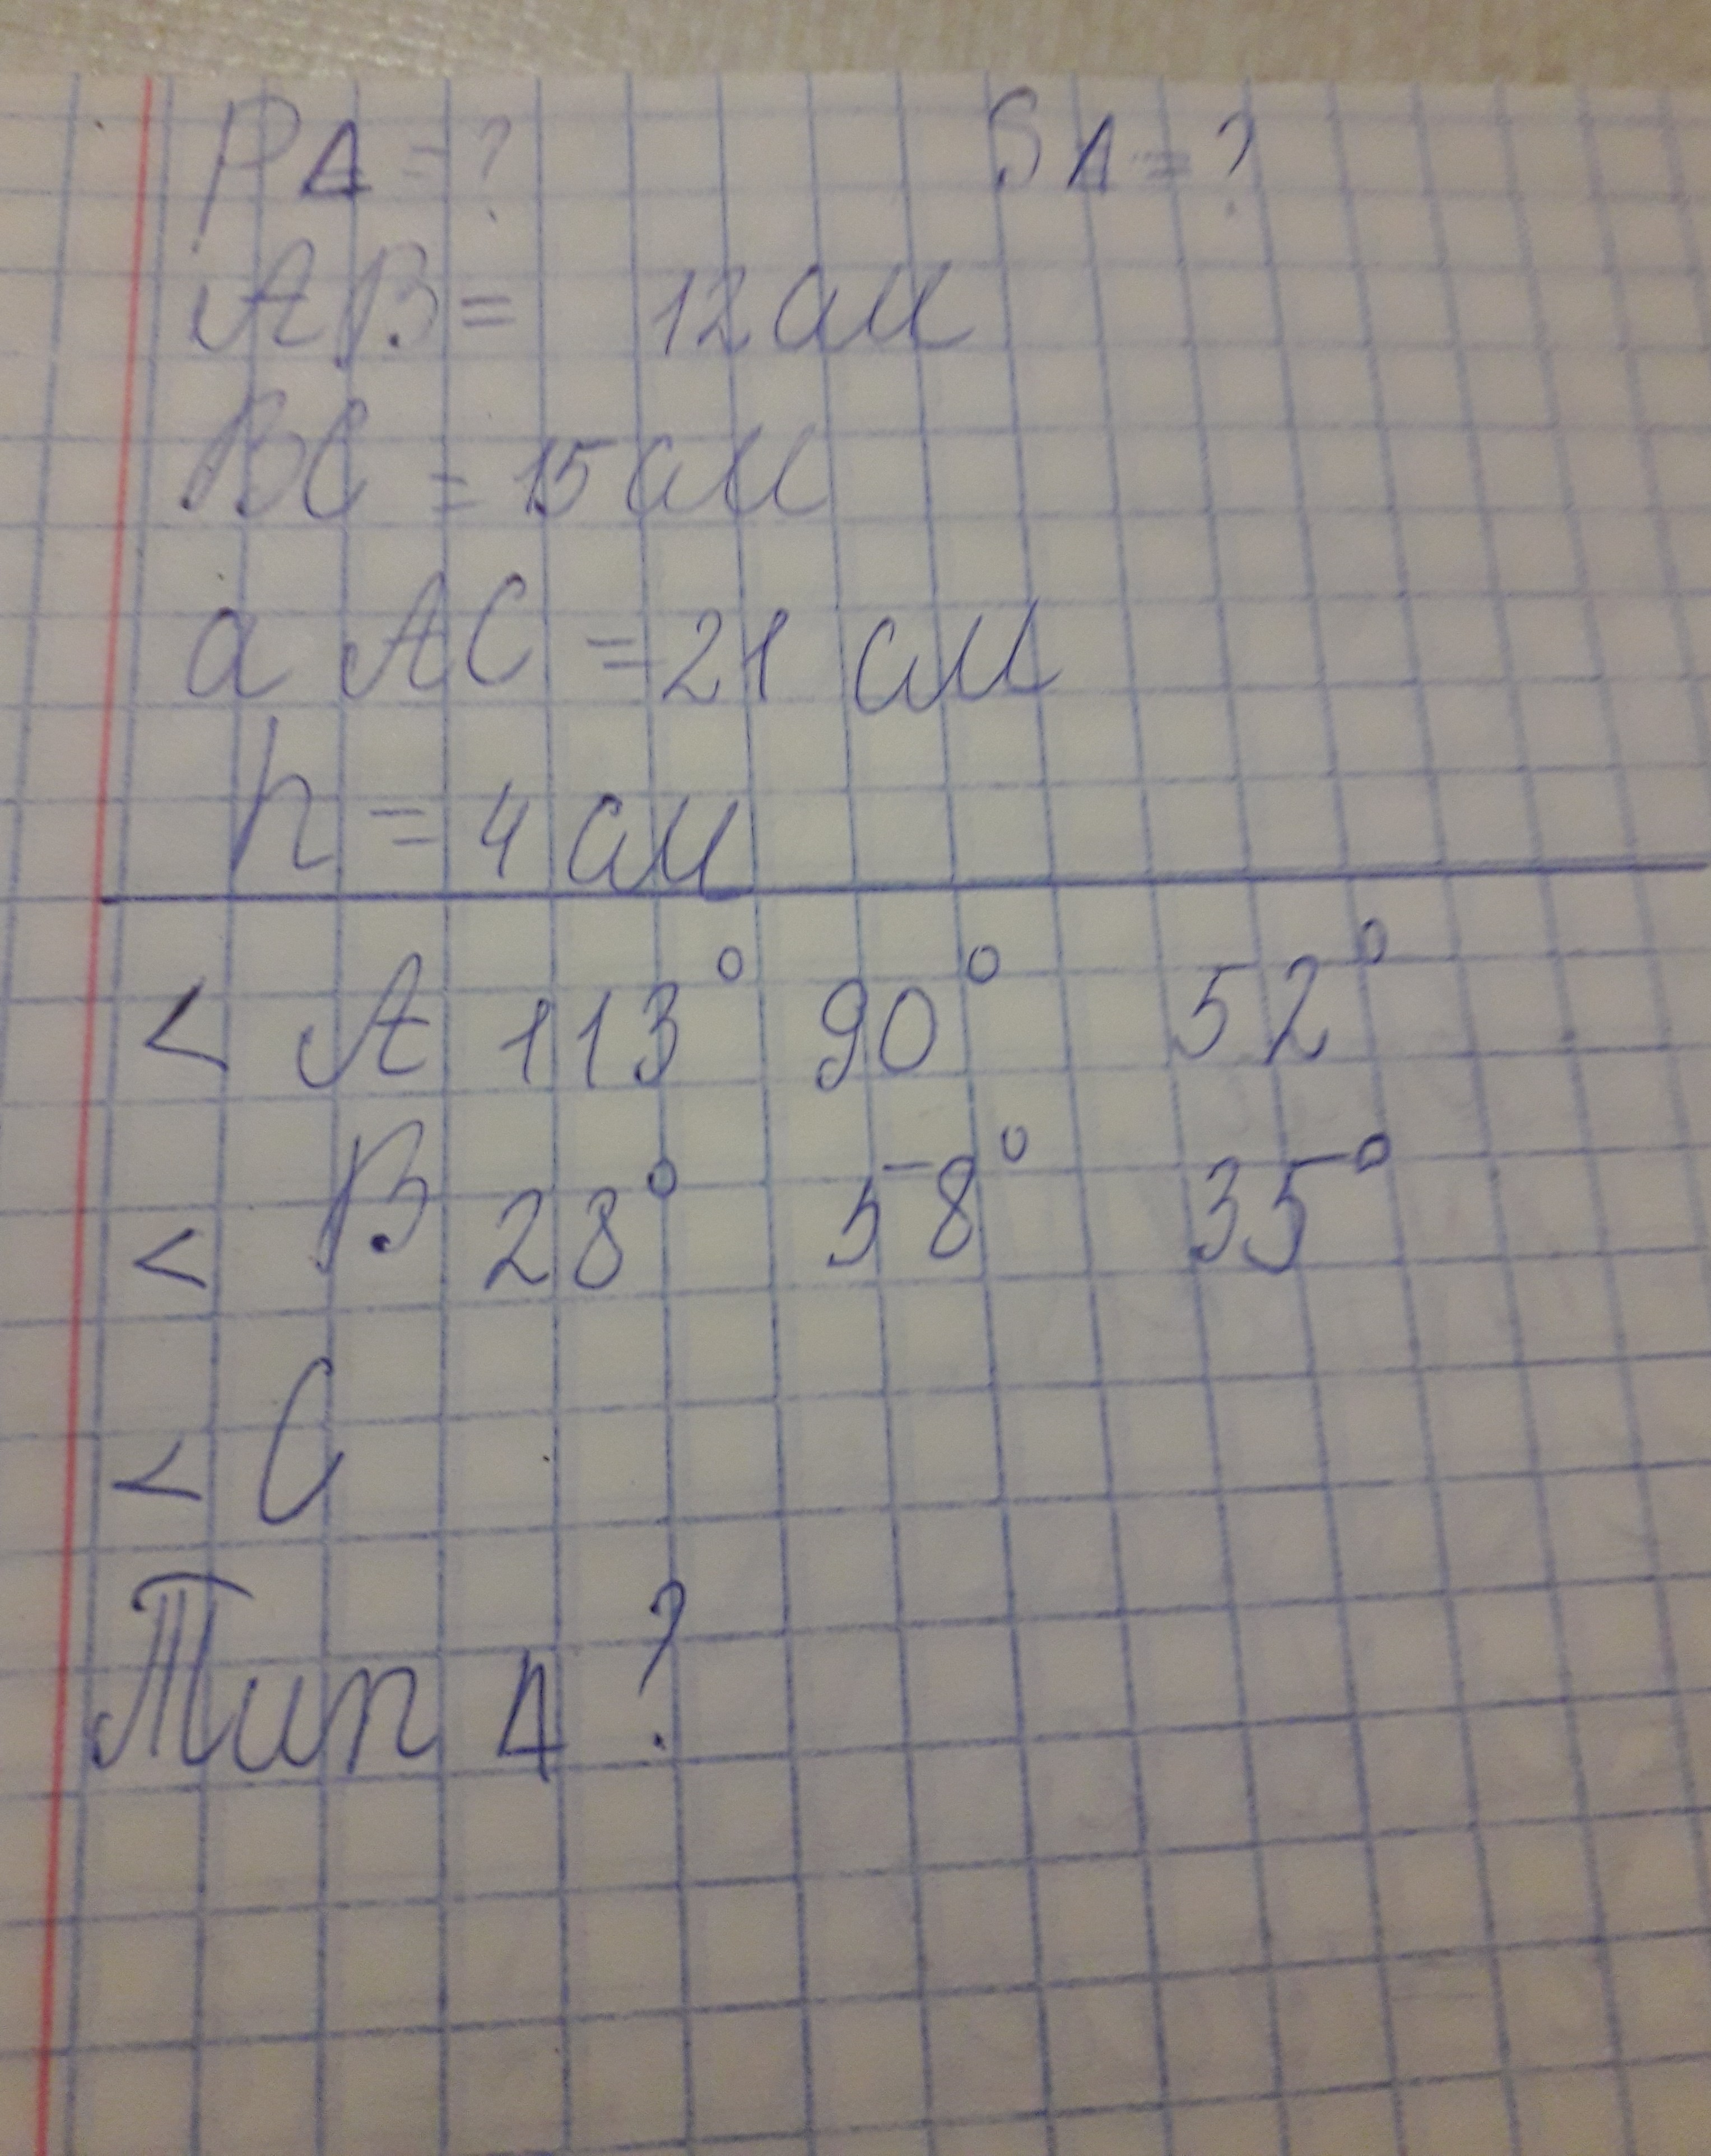 P Δ = ? S Δ = ?
AB = 12 см
BC = 15 см
a AC = 21 см
h = 4 см
< A 113° 90° 52°
< B 28° 58° 35°
< C
Тип Δ ?